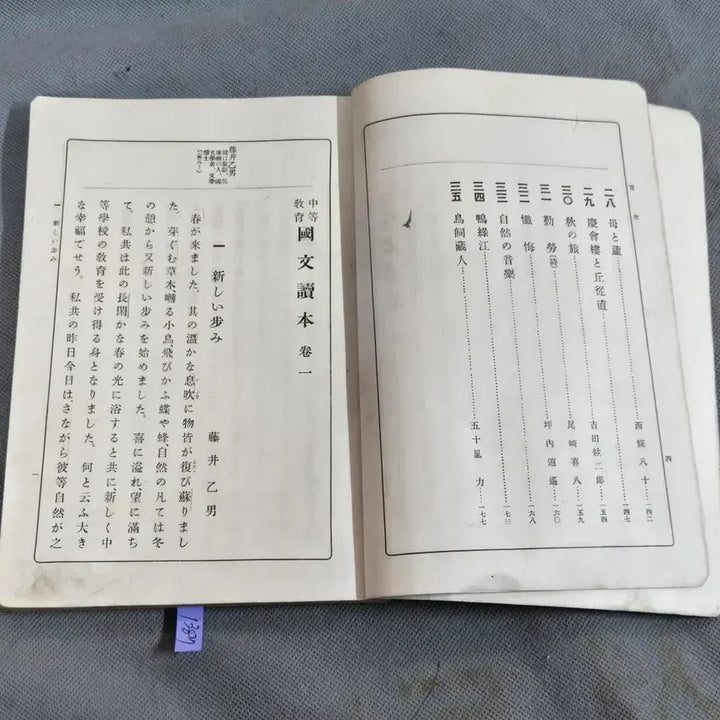 目次
四
二八 母と蘆 西條八十 一四二
二九 慶會樓と丘從道 一四七
三〇 秋の旅 吉田絃二郎 一五四
三一 勤勞(詩) 尾崎喜八 一五九
三二 懺悔 坪内逍遙 一六〇
三三 自然の音樂 一六八
三四 鴨綠江 一七三
三五 鳥飼藏人 五十嵐力 一七七
中等教育 國文讀本 卷一
一 新しい步み
藤井乙男
藤井乙男
庫縣の人、國
文學者、文學
博士
春が來ました。其の溫かな息吹に物皆が復び蘇りまし
た。芽ぐむ草木、囀る小鳥、飛びかふ蝶や蜂、自然の凡ては冬
の憩から又新しい步みを始めました。喜に溢れ、望に滿ち
て。私共は此の長閑かな春の光に浴すると共に新しく中
等學校の敎育を受け得る身となりました。何と云ふ大き
な幸福でせう。私共の昨日今日は、さながら彼等自然が之
一 新しい步み
一